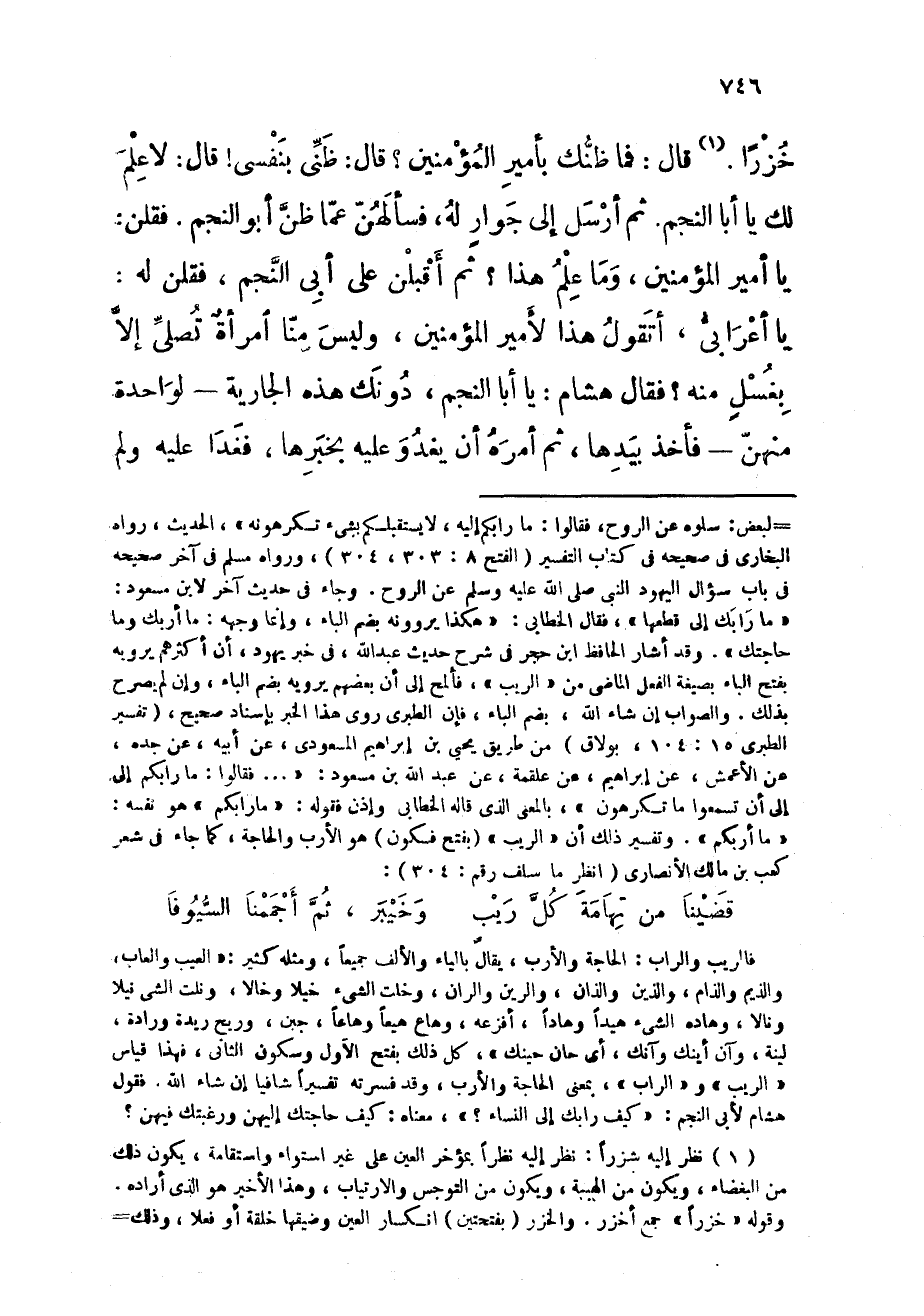 ٧٤٦
خُزْرًا .(١) قال : فما ظنُّك بأميرِ المُؤْمنين ؟ قال : ظَنِّى بنَفْسى! قال : لا عِلْمَ
لك يا أبا النجم. ثم أرْسَل إلى جَوارٍ لهُ، فسألَهُنّ عمّا ظنَّ أبو النجم . فقلن :
يا أمير المؤمنين ، وَمَا عِلْمُ هذا ؟ ثم أَقْبلْن على أبى النَّجم ، فقلن له :
يا أعْرَابىُّ ، أتَقولُ هذا لأَمير المؤمنين ، وليسَ مِنّا أمرأةٌ تُصلِّى إلاَّ
بِغُسْلٍ منه ؟ فقال هشام : يا أبا النجم ، دُونَك هذه الجارية — لوَاحدة
منهنّ — فأخذ بيَدِها ، ثم أمرَهُ أن يغدُوَ عليه بخَبَرِها ، فغَدَا عليه ولم
=لبعض : سلوه عن الروح، فقالوا : ما رابكم إليه ، لا يستقبلكم بشىء تكرهونه » ، الحديث ، رواه
البخارى فى صحيحه فى كتاب التفسير ( الفتح ٨ : ٣٠٣ ، ٣٠٤ ) ، ورواه مسلم فى آخر صحيحه
فى باب سؤال اليهود النبى صلى الله عليه وسلم عن الروح . وجاء فى حديث آخر لابن مسعود :
« ما رَابَك إلى قطعها » ، فقال الخطابى : « هكذا يروونه بضم الباء ، وإنما وجهه : ما أربك وما
حاجتك » . وقد أشار الحافظ ابن حجر فى شرح حديث عبدالله ، فى خبر يهود ، أن أكثرهم يرويه
بفتح الباء بصيغة الفعل الماضى من « الريب » ، فألمح إلى أن بعضهم يرويه بضم الباء ، وإن لم يصرح
بذلك . والصواب إن شاء الله ، بضم الباء ، فإن الطبرى روى هذا الخبر بإسناد صحيح ، ( تفسير
الطبرى ١٥ : ١٠٤ ، بولاق ) من طريق يحيى بن إبراهيم المسعودى ، عن أبيه ، عن جده ،
عن الأعمش ، عن إبراهيم ، عن علقمة ، عن عبد الله بن مسعود : « ... فقالوا : ما رابكم إلى
إلى أن تسمعوا ما تكرهون » ، بالمعنى الذى قاله الخطابى وإذن فقوله : « مارابكم » هو نفسه :
« ما أربكم » . وتفسير ذلك أن « الريب » (بفتح فسكون) هو الأرب والحاجة ، كما جاء فى شعر
كعب بن مالك الأنصارى ( انظر ما سلف رقم : ٣٠٤ ) :
قضَيْنا من تِهامَةَ كُلَّ رَيْبٍ وَخَيْبَر ، ثُمَّ أَجْمَمْنَا السُّيُوفَا
فالريب والراب : الحاجة والأرب ، يقال بالياء والألف جميعاً ، ومثله كثير : « العيب والعاب،
والذيم والذام ، والذين والذان ، والرين والران ، وخلت الشىء خيلا وخالا ، ونلت الشى نيلا
ونالا ، وهاده الشىء هيداً وهاداً ، أفزعه ، وهاع هيعاً وهاعاً ، جبن ، وريح ريدة ورادة ،
لينة ، وآن أينك وآنك ، أى حان حينك » ، كل ذلك بفتح الأول وسكون الثانى ، فهذا قياس
« الريب » و « الراب » ، بمعنى الحاجة والأرب ، وقد فسرته تفسيراً شافيا إن شاء الله . فقول
هشام لأبى النجم : « كيف رابك إلى النساء ؟ » ، معناه : كيف حاجتك إليهن ورغبتك فيهن ؟
( ١ ) نظر إليه شزراً : نظر إليه نظراً بمؤخر العين على غير استواء واستقامة ، يكون ذلك
من البغضاء ، ويكون من الهيبة ، ويكون من التوجس والارتياب ، وهذا الأخير هو الذى أراده .
وقوله « خزراً » جمع أخزر . والخزر ( بفتحتين ) انكسار العين وضيقها خلقة أو فعلا ، وذلك=